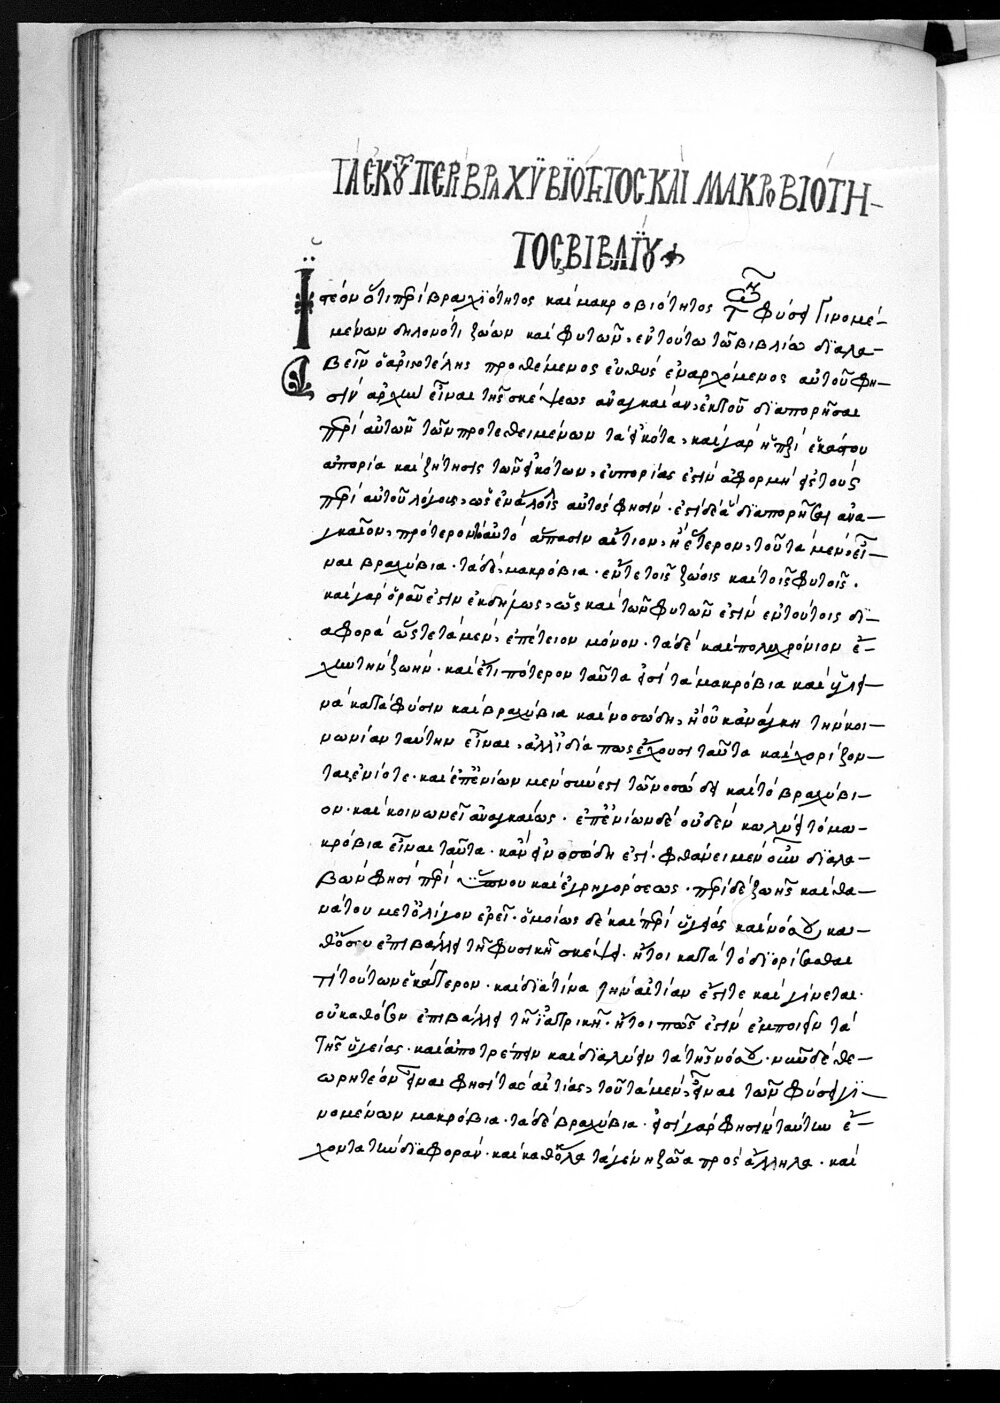 ΤΑ ΕΚ ΤΟΥ ΠΕΡΙ ΒΡΑΧΥΒΙΟΤΗΤΟΣ ΚΑΙ ΜΑΚΡΟΒΙΟΤΗ-
ΤΟΣ ΒΙΒΛΙΟΥ
Ἰστέον ὅτι περὶ βραχϊότητος καὶ μακροβιότητος τῶν φύσει γινομέ-
μένων δηλονότι ζώων καὶ φυτῶν, ἐν τούτω τῶ βιβλίω διαλα-
βεῖν ὁ ἀριστοτέλης προθέμενος εὐθὺς ἐναρχόμενος αὐτοῦ φη-
σὶν ἀρχὴν εἶναι τῆς σκέψεως ἀναγκαίαν, ἐκ τοῦ διαπορῆσαι
περὶ αὐτῶν τῶν προτεθειμένων τὰ εἰκότα, καὶ γὰρ ἡ περὶ ἑκάστου
ἀπορία καὶ ζήτησις τῶν εἰκότων, εὐπορίας ἐστὶν ἀφορμὴ εἰς τοὺς
περὶ αὐτοῦ λόγους, ὡς ἐν ἄλλοις αὐτός φησιν. ἔστι δὲ ἃ διαπορῆσαι ἀνα-
γκαῖον, πρότερον τὸ αὐτὸ ἅπασιν αἴτιον, ἢ ἕτερον, τοῦ τὰ μὲν, εἶ-
ναι βραχύβια. τὰ δὲ, μακρόβια. ἔν τε τοῖς ζώοις καὶ τοῖς φυτοῖς.
καὶ γὰρ ὁρᾶν ἐστιν ἐκδήμως, ὡς καὶ τῶν φυτῶν ἐστιν ἐν τούτοις δι-
αφορὰ ὥστε τὰ μὲν, ἐπέτειον μόνον. τὰ δὲ καὶ πολυχρόνιον ἔ-
χειν τὴν ζωήν. καὶ ἔτι πότερον ταῦτά εἰσι τὰ μακρόβια καὶ ὑγιει-
νὰ κατὰ φύσιν καὶ βραχύβια καὶ νοσώδη, ἢ οὐκ ἀνάγκη τὴν κοι-
νωνίαν ταύτην εἶναι, ἀλλ' ἰδία πως ἔχουσι ταῦτα καὶ χορίζον-
ται ἐνίοτε. καὶ ἐπ' ἐνίων μὲν σύνεστι τῶ νοσώδει καὶ τὸ βραχύβι-
ον. καὶ κοινωνεῖ ἀναγκαίως. ἐπ' ἐνίων δὲ οὐδὲν κωλύει τὸ μα-
κρόβια εἶναι ταῦτα. κἂν εἰ νοσώδη ἐστί. φθάνει μὲν οὖν διαλα-
βών φησι περὶ ὕπνου καὶ ἐγρηγόρσεως. περὶ δὲ ζωῆς καὶ θα-
νάτου μετ' ὀλίγον ἐρεῖ. ὁμοίως δὲ καὶ περὶ ὑγείας καὶ νόσου κα-
θ' ὅσον ἐπιβάλλει τῆ φυσικῆ σκέψει. ἤτοι κατὰ τὸ διορίσασθαι
τί τούτων ἑκάτερον. καὶ διὰ τίνα τὴν αἰτίαν ἔστι τε καὶ γίνεται.
οὐ καθόσον ἐπιβάλλει τῆ ἰατρικῆ. ἤτοι πῶς ἐστὶν ἐμποιεῖν τὰ
τῆς ὑγείας. καὶ ἀποτρέπειν καὶ διαλύειν τὰ τῆς νόσου. νῦν δὲ θε-
ωρητέον εἶναι φησὶ τὰς αἰτίας, τοῦ τὰ μὲν, εἶναι τῶν φύσει γι-
νομένων μακρόβια. τὰ δὲ βραχύβια. εἰσὶ γάρ φησιν ταύτην ἔ-
χοντα τὴν διαφοράν. καὶ καθ' ὅλα τὰ γένη ζῶα πρὸς ἄλληλα. καὶ